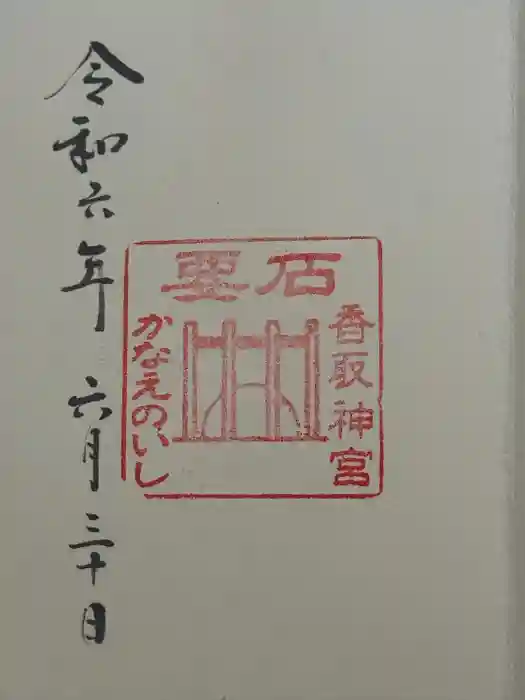 要石
香取神宮
かなえのいし
令和六年 六月 三十日